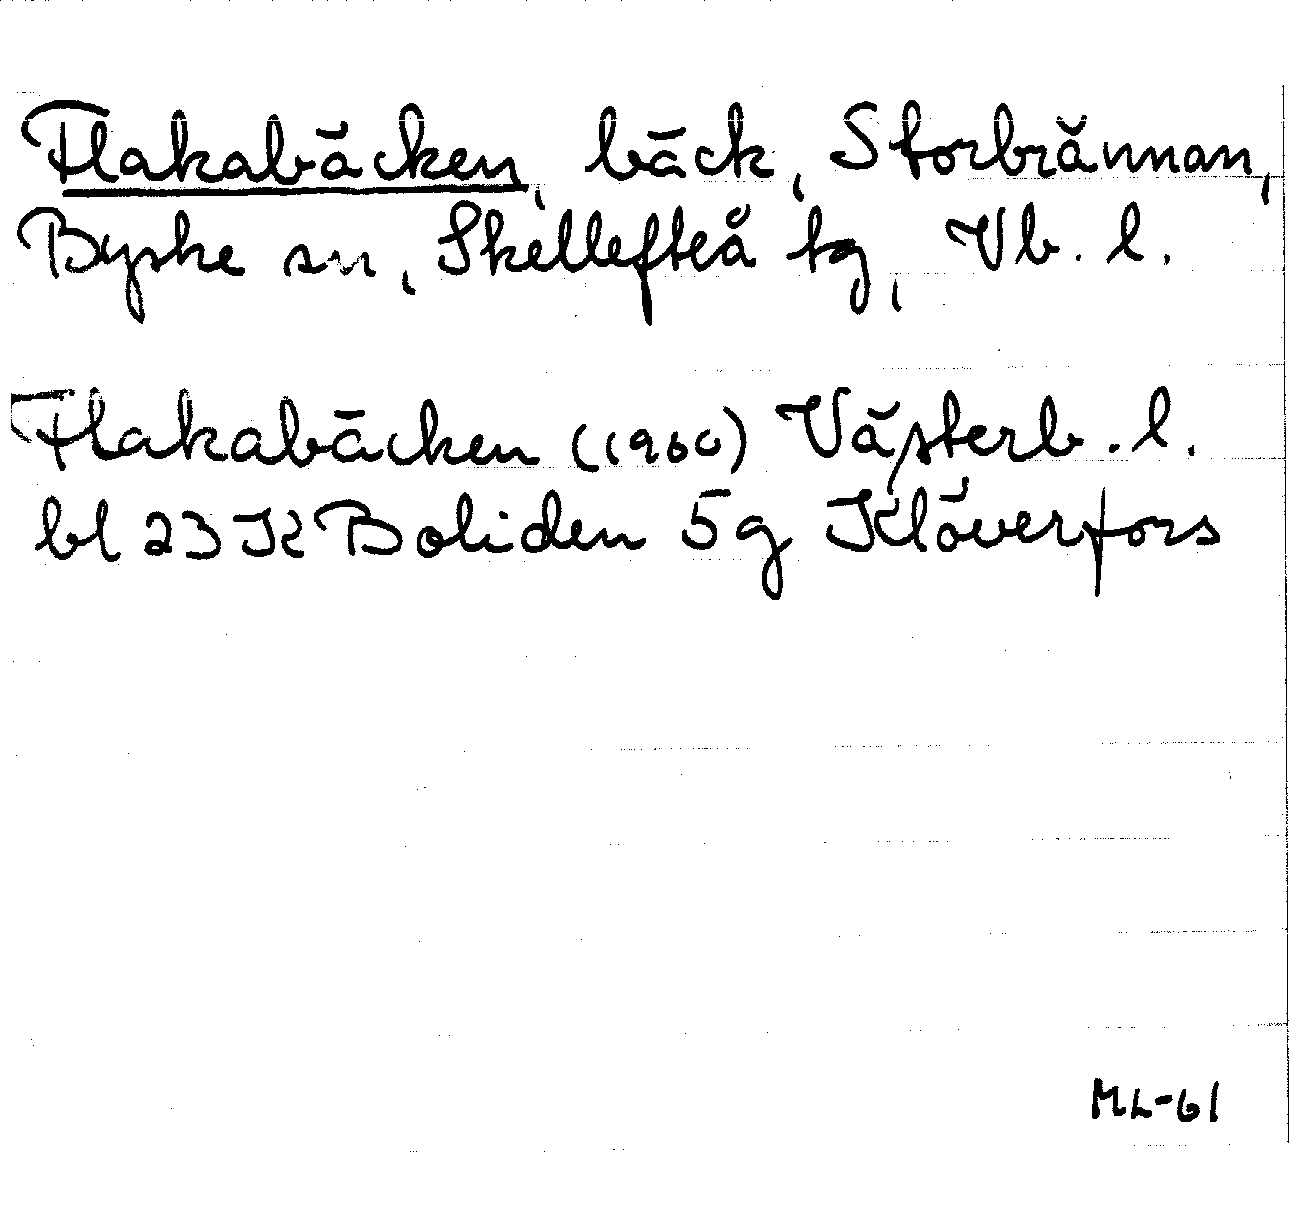 Flakabäcken, bäck, Storbrännan,
Byske sn, Skellefteå tg, Vb. l.
Flakabäcken (1960) Västerb. l.
bl 23 K Boliden 5g Klöverfors
ML-61